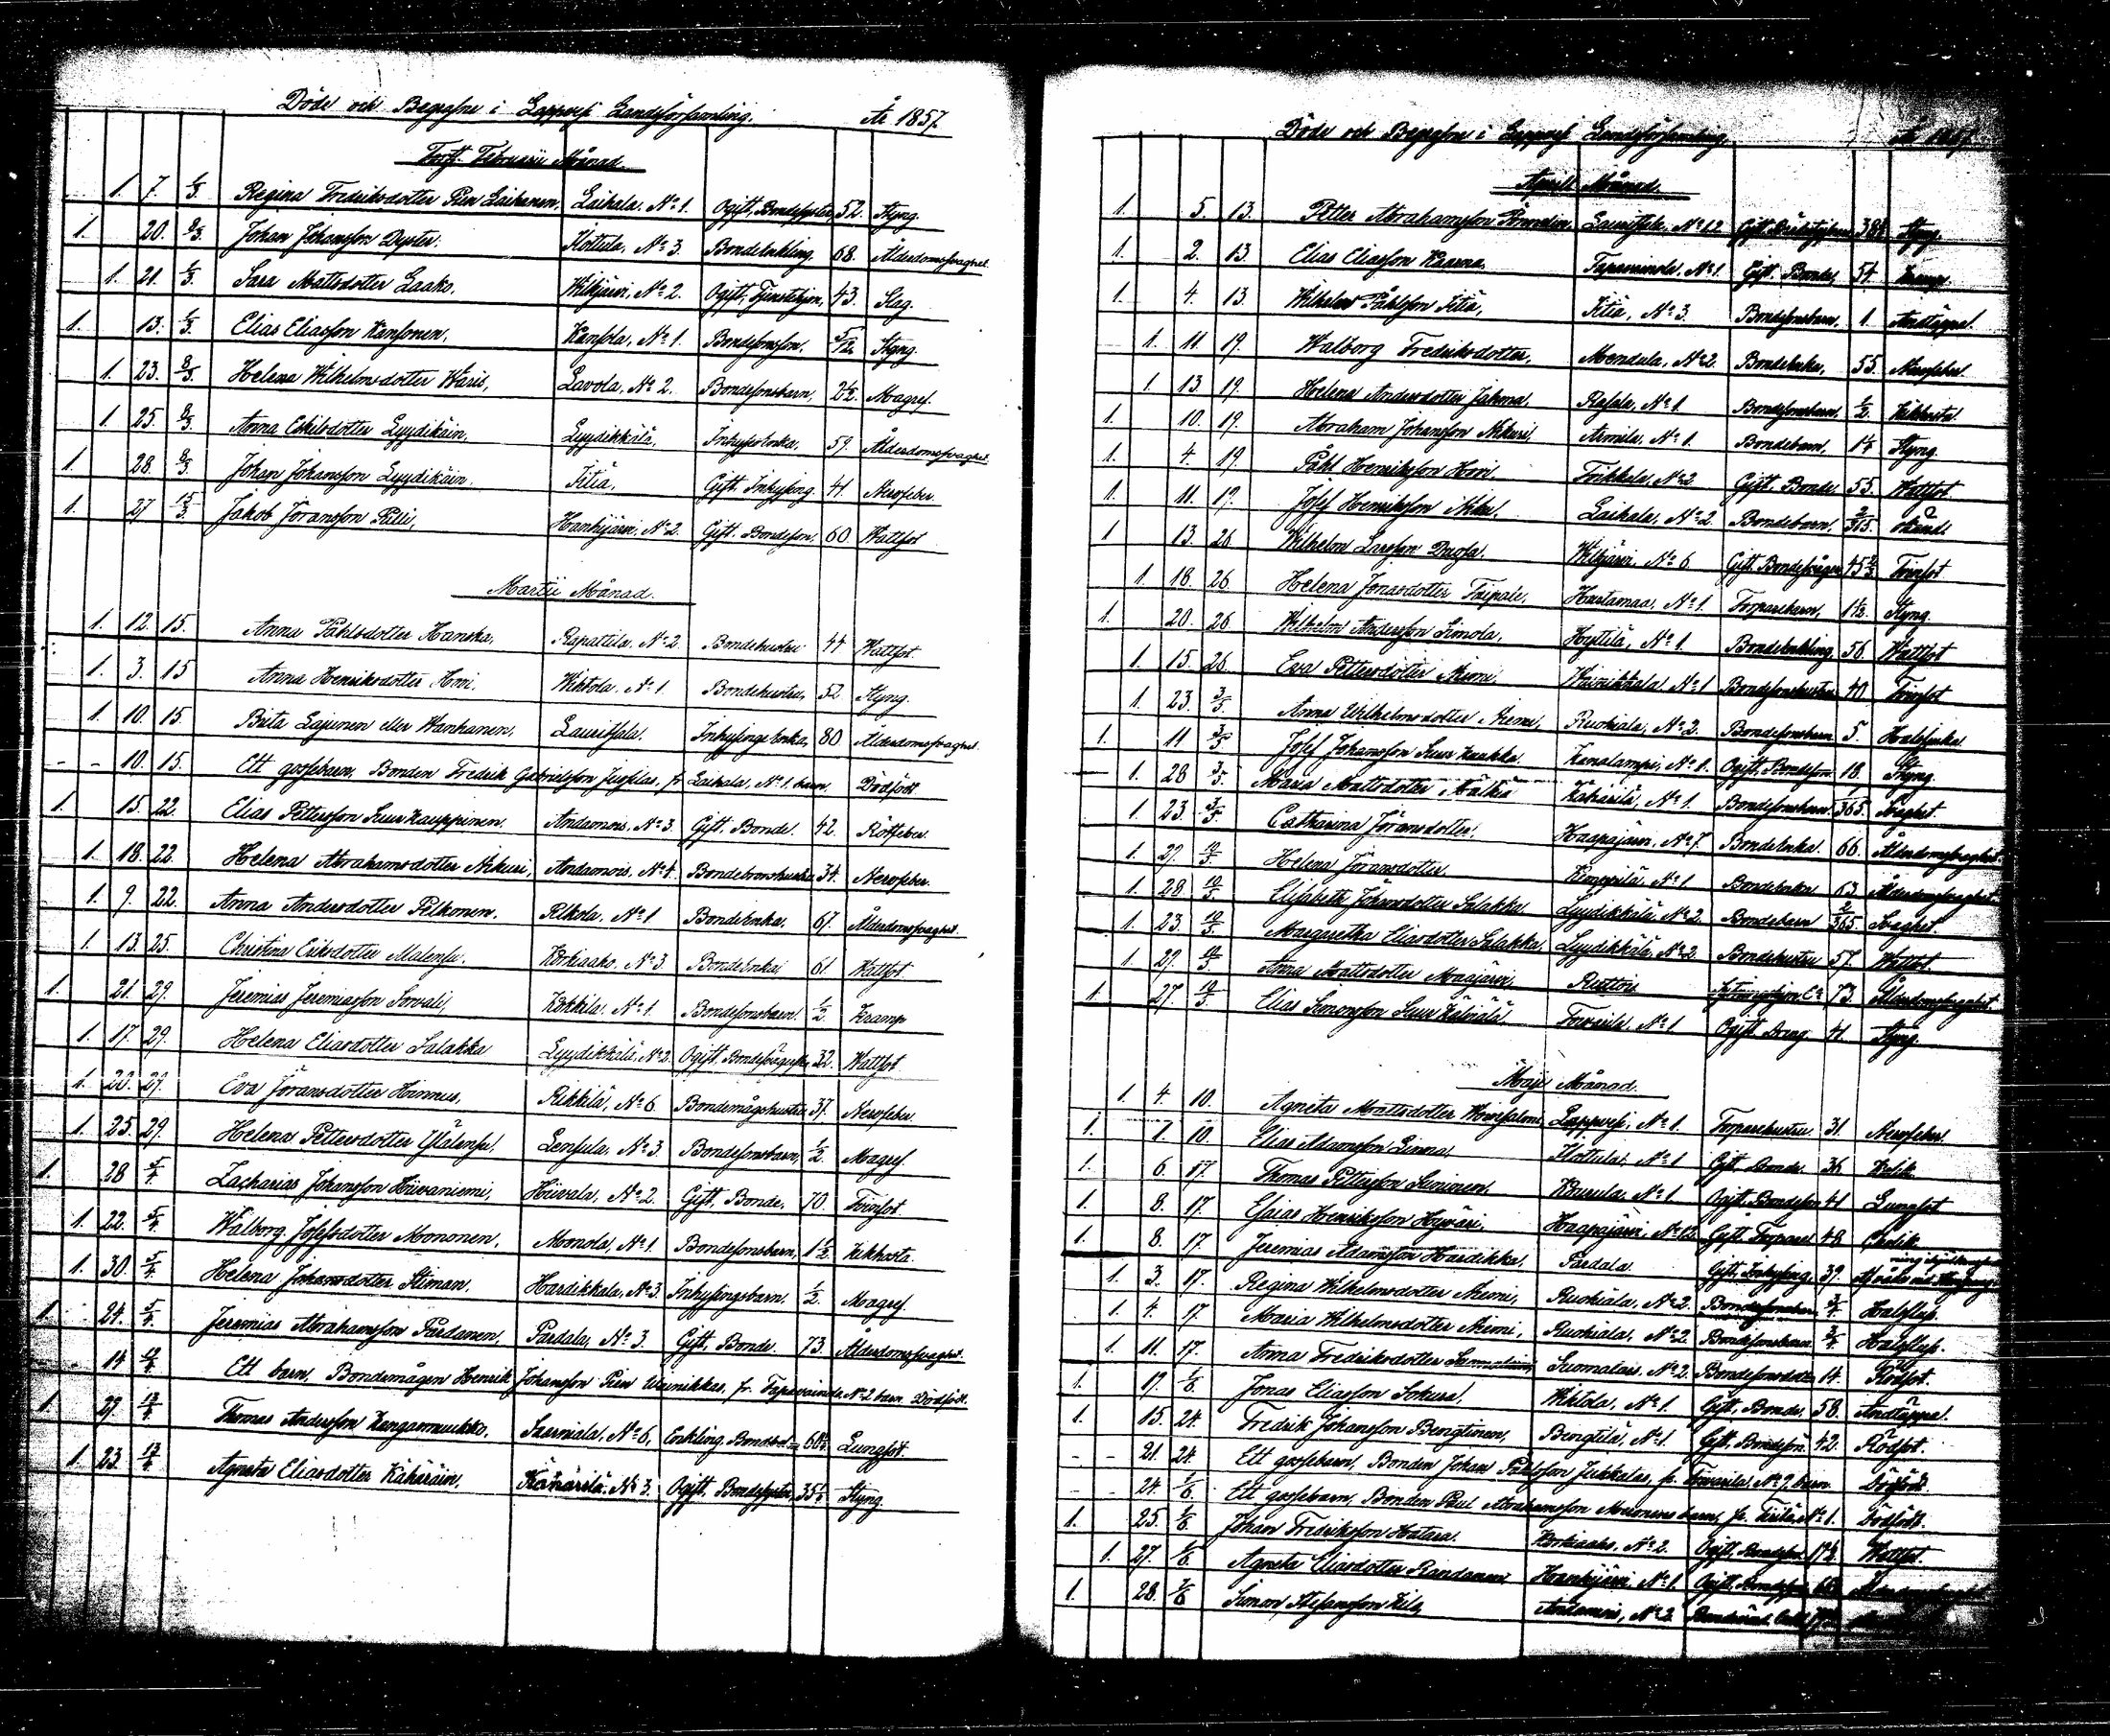 Döde och Begrafne i Lappvesi Landsförsamling. År 1857.
Forts. Februarii Månad.
1. 7. 1/3 Regina Fredriksdotter Pien Laihanen, Laihala, No 1. Ogift, Bondesyster 52. Styng.
1. 20. 8/3. Johan Johansson Dyster. Kottula, No 3. Bondeenkling 68. Ålderdomsvaghet.
1. 21. 1/3. Sara Mattsdotter Laako. Wilkjärvi, No 2. Ogift, Tjenstehjon, 43. Slag.
1. 13. 1/3. Elias Eliasson Kansonen, Kansola, No 1. Bondesonson. 5/12 Styng.
1. 23. 8/3. Helena Wilhelmsdotter Waris, Lavola, No 2. Bondesonsbarn, 2 1/2. Magref.
1. 25. 8/3. Anna Eskilsdotter Lyydikäin, Lyydikkälä, Inhysesenka, 59. Ålderdomsvaghet.
1. 28. 8/3. Johan Johansson Lyydikäin. Titiä. Gift. Inhysing 41. Nervfeber.
1. 27 15/3. Jakob Jöransson Pälli, Hanhijärvi, No 2. Gift. Bondeson, 60 Wattsot
Martii Månad.
1. 12. 15. Anna Påhlsdotter Hanska, Rapattila, No 2. Bondehustru 44 Wattsot.
1. 3. 15 Anna Henriksdotter Hovi. Wihtola, No 1. Bondehustru, 52 Styng.
1. 10. 15. Brita Lajunen eller Wanhanen. Lauritsala. Inhysingsenka, 80 Ålderdomsvaghet.
- - 10. 15. Ett gossebarn, Bonden Fredrik Gabrielsson Jussilas, fr Laihala, No 1. barn. Dödfödt
1. 15. 22. Elias Pettersson Suur Kauppinen. Andamois, No 3. Gift. Bonde. 42. Rötfeber.
1. 18. 22. Helena Abrahamsdotter Nikuri, Andamois, No 4. Bondebrorshustru 34. Nervfeber.
1. 9. 22. Anna Andersdotter Pelkonen. Pelkola, No 1 Bondeenka. 67. Ålderdomsvaghet.
1. 13. 25. Christina Eriksdotter Malensu. Korkiaaho, No 3. Bondeenka 61. Wattsot
1. 21. 29. Jeremias Jeremiasson Sorvali, Kokkila, No 1. Bondesonsbarn. 1/2. Kramp
1. 17. 29. Helena Eliasdotter Salakka Lyydikkälä, No 2. Ogift 32. Wattsot
1. 20. 29. Eva Jöransdotter Hinnus, Rikkilä, No 6. Bondemågshustru 37. Nervfeber.
1. 25. 29. Helena Pettersdotter Lensula, No 3. Bondesonsbarn, 1/2. Magref.
1. 28 5/4. Zacharias Johansson Hiivaniemi, Hiivala, No 2. Gift, Bonde. 70. Tvinsot.
1. 22. 5/4. Walborg Josefsdotter Mononen. Monola, No 1. Bondesonsbarn, 1 1/2. Kikhosta.
1. 30. 5/4. Helena Johansdotter Stiman. Hardikkala, No 3. Inhysingsbarn. 1/2. Magref.
1. 24. 5/4. Jeremias Abrahamsson Pardanen, Pardala, No 3. Gift, Bonde. 73. Ålderdomsvaghet.
- - 14 12/4. Ett barn, Bondemågen Henrik Johansson Pien Wainikkas, fr. Tapavainola No 2 barn. Dödfödt.
1. 27. 12/4. Thomas Andersson Kungasmuukko. No 6, Enkling, Lungsot.
1. 23. 12/4. Agneta Eliasdotter Kähäräin, Kähärilä, No 3. Ogift, Bondesyster Styng.
Döde och Begrafne i Lappvesi Landsförsamling. År 1857.
Aprilis Månad.
1. 5. 13. Petter Abrahamsson Lauritsala, No 12. Gift Styng.
1. 2. 13. Elias Eliasson Kaarna. Tapavainola No 1. Gift. Bonde, 54.
1. 4. 13. Wilhelm Påhlsson Titiä, Titiä, No 3. Bondesonsbarn, 1. Andtäppa.
1. 11. 19. Walborg Fredriksdotter, Mendula, No 2. Bondeenka, 55. Nervfeber.
1. 13. 19. Helena Andersdotter No 1. Bondesonsbarn, 1/2. Kikhosta.
1. 10. 19. Abraham Johansson Nikuri, Armila, No 1. Bondebarn, Styng.
1. 4. 19. Påhl Henriksson Hovi. No 2 Gift. Bonde 55. Wattsot
1. 11. 19. Josef Henriksson Laihala, No 2. Bondebarn. 2/365. Okänd.
1 13. 26 Wilhelm Larsson Wilkjärvi, No 6 Gift. Tvinsot
1. 18. 26 Helena Jonasdotter Taipale. Hartamaa, No 1. Torparebarn, 1 1/2. Styng.
1. 20. 26 Wilhelm Andersson Simola. Hyttilä, No 1. Bondeenkling 56. Wattsot
1. 15. 26. Eva Pettersdotter Niemi Wainikkala No 1 Bondesonshustru 40. Tvinsot
1. 23. 3/5. Anna Wilhelmsdotter Niemi, Ruohiala, No 2. Bondesonsbarn 5. Halssjuka
1. 11 3/5. Josef Johansson Suur Kaakko. No 1. Ogift, Bondeson 18. Styng.
1. 28 3/5. Maria Mattsdotter Mälkiä Kähärilä, No 1. Bondesonsbarn Svaghet.
1. 23. 3/5. Catharina Jöransdotter. Haapajärvi, No 7. Bondeenka. 66. Ålderdomsvaghet.
1. 27. 10/5. Helena Jöransdotter No 1. Bondeenka 63. Ålderdomsvaghet.
1. 28. 10/5. Elisabeth Johansdotter Salakka Lyydikkälä No 2. Bondebarn 2/365. Svaghet.
1. 23. 10/5. Margaretha Eliasdotter Salakka, Lyydikkälä, No 2. Bondehustru 57. Wattsot.
1. 27. 10/5. Anna Mattsdotter 73. Ålderdomsvaghet.
1. 27. 10/5. Elias Simonsson Suur Toivarila, No 1 Ogift Dreng 41. Styng.
Maji Månad.
1. 4. 10. Agneta Mattsdotter Lappvesi, No 1. Torparehustru 31. Nervfeber.
1. 7. 10. Elias Adamsson Linna. Kottula, No 1 Gift. Bonde 36 Kolik
1. 6. 17. Thomas Pettersson Suninen. No 1 Ogift, Bondeson 41 Lungsot
1. 8. 17. Esaias Henriksson Hyväri. Haapajärvi, Gift. Torpare 48
1. 8. 17. Jeremias Adamsson Hardikka. Pardala. Gift, Inhysing, 39.
1. 3. 17. Regina Wilhelmsdotter Niemi, Ruohiala, No 2. Bondesonsbarn 3/4 Halsfluss.
1. 4. 17. Maria Wilhelmsdotter Niemi, Ruohiala, No 2 Bondesonsbarn 3/4. Halsfluss.
1. 11. 17. Anna Fredriksdotter Suomalainen Suomalais. No 2. Bondesonsdotter 14. Rödsot.
1. 17. 1/6. Jonas Eliasson Sokura, Wihtola, No 1. Gift. Bonde. 58. Andtäppa.
1. 15. 24. Fredrik Johansson Bengtinen, Bengtilä, No 1. Gift. Bondeson 42. Rödsot.
- - 21. 24. Ett gossebarn, Bonden Johan Påhlsson Jukkalas, fr. Toivarila No 7. barn. Dödfödt
- - 24. 1/6. Ett gossebarn, Bonden Paul Abrahamsson Mononens barn, fr. No 1. Dödfödt.
1. 25. 1/6. Johan Fredriksson Hatara. Korkiaaho, No 2. Ogift, Bondeson Wattsot.
1. 27. 1/6. Agneta Eliasdotter Randanen Hanhijärvi, No 1.
1. 28. 7/6 Simon Stefansson Kila Andamois, No 2.